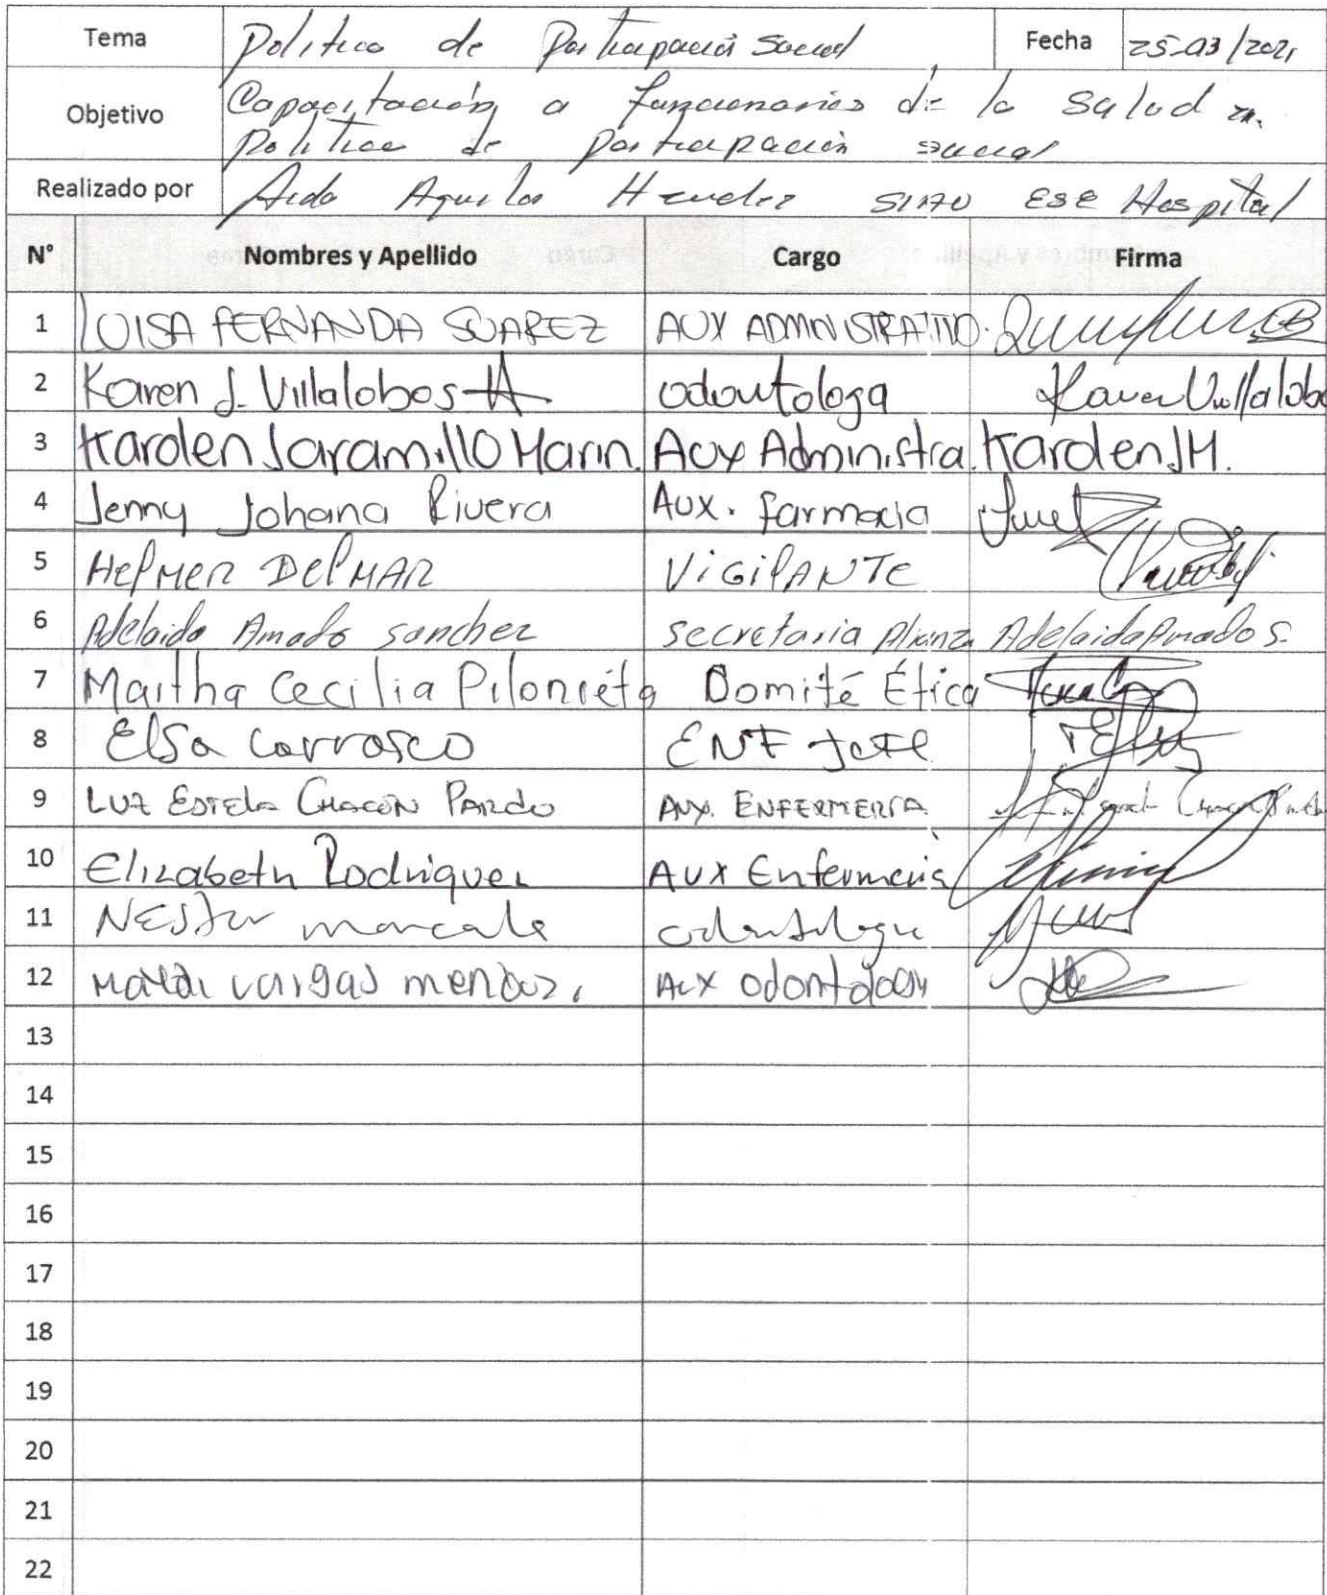 Tema Politica de Participación Social Fecha 25-03/2021
Objetivo Capacitación a funcionarios de la salud en
Politica de Participación social
Realizado por Aida Aguilar SIAU ESE Hospital
N° Nombres y Apellido Cargo Firma
1 LUISA FERNANDA SUAREZ AUX ADMINISTRATIVO.
2 Karen J. Villalobos A odontologa Karen Villalobo
3 Karolen Jaramillo Marin. Aux Administra. Karolen JM.
4 Jenny Johana Rivera Aux. farmacia
5 HelMER DelMAR ViGilANTe
6 Adelaida Amado sanchez secretaria Alianza Adelaida Amado S.
7 Martha Cecilia Pilonieta Comité Ética
8 Elsa Carrasco ENF Jefe
9 LUZ ESTELA CHACÓN PARDO AUX. ENFERMERÍA
10 Elizabeth Rodriguez AUX Enfermeria
11 NESTOR odontologo
12 vargas AUX odontology
13
14
15
16
17
18
19
20
21
22